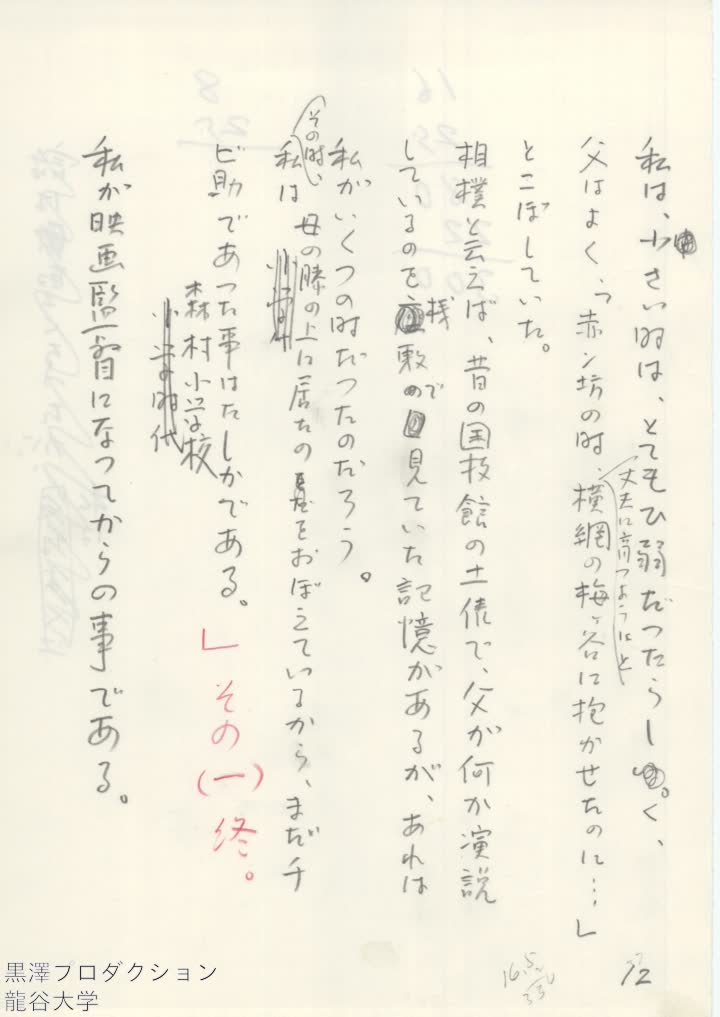 私は、小さい時は、とてもひ弱だつたらしく、
父はよく、「赤ン坊の時、横綱の梅ヶ谷に抱かせたのに…」
丈夫に育つようにと
とこぼしていた。
相撲と云えば、昔の国技館の土俵で、父が何か演説
しているのを桟敷で見ていた記憶があるが、あれは
私がいくつの時だつたのだろう。
その時、
私は母の膝の上に居たのをおぼえているから、まだチ
ビ助であつた事はたしかである。」その(一)終。
森村小学校
小学時代
私が映画監督になつてからの事である。
12
16.5
黒澤プロダクション
龍谷大学